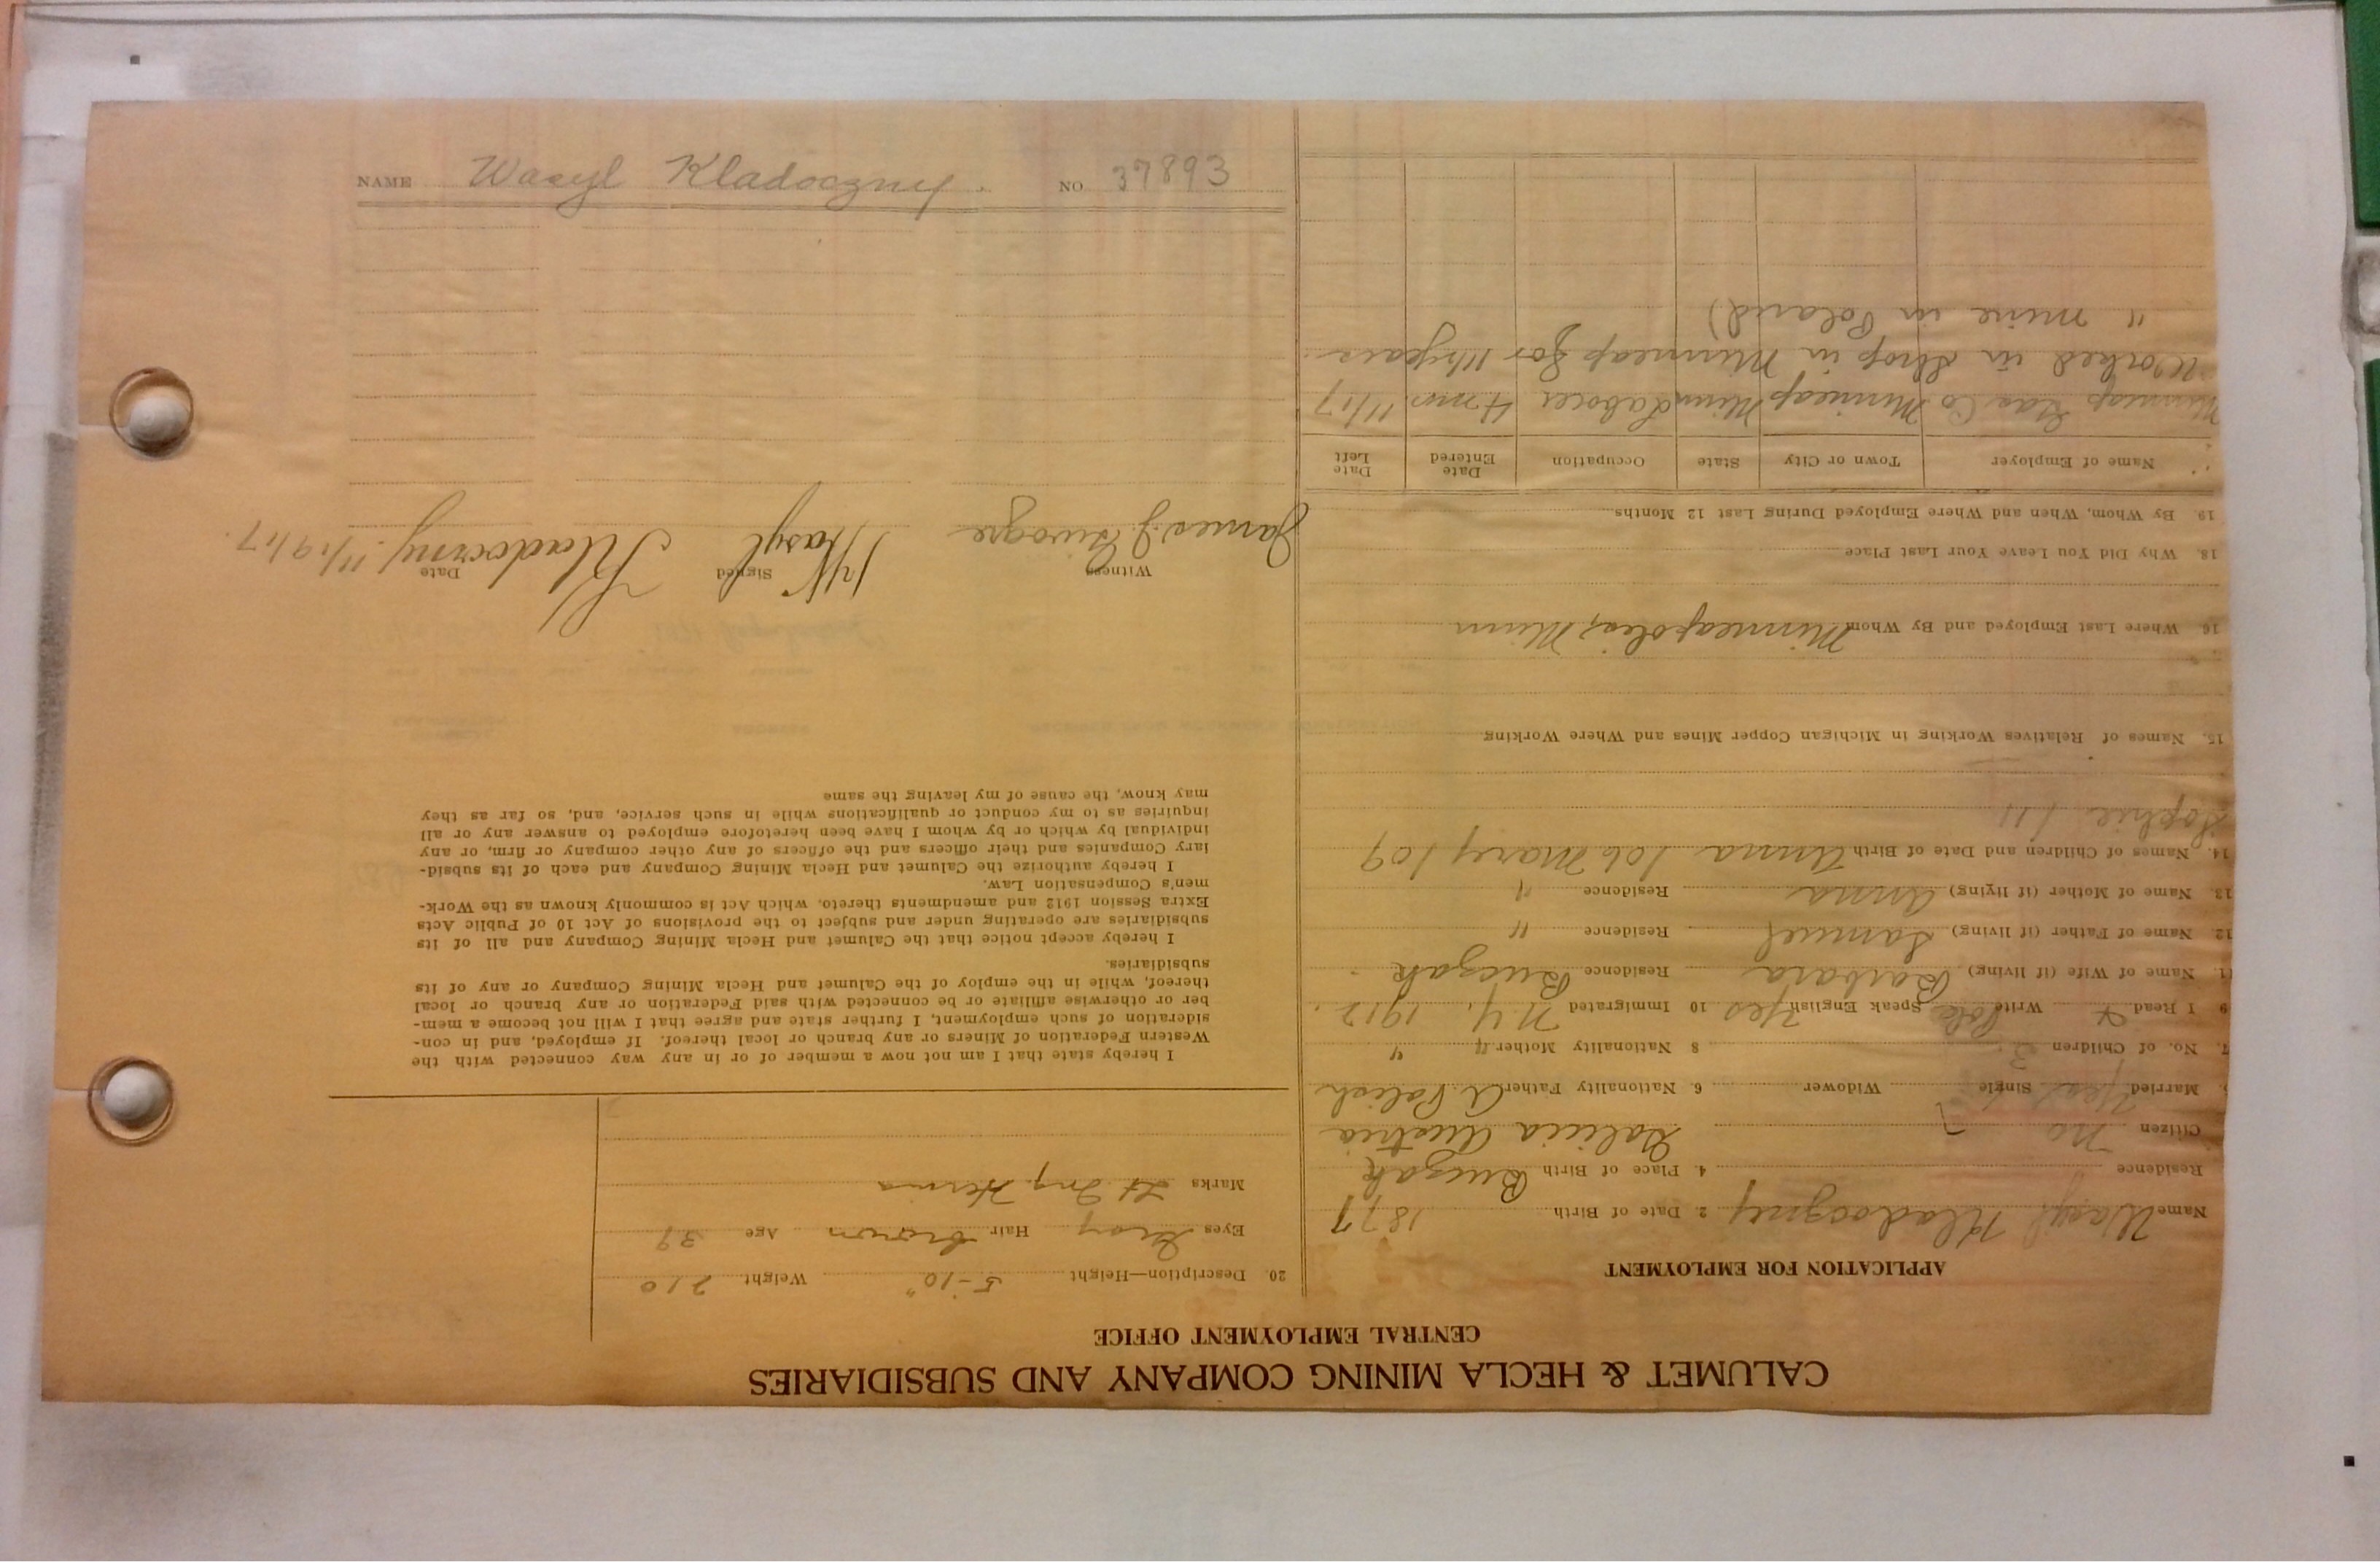 NAME Wasyl Kladoczney. NO 37893
CALUMET & HECLA MINING COMPANY AND SUBSIDIARIES
CENTRAL EMPLOYMENT OFFICE
APPLICATION FOR EMPLOYMENT
Name Wasyl Kladoczney 2. Date of Birth 1877
Residence 4. Place of Birth Buczak
Citizen no Galicia Austria
Married Yes Single Widower 6. Nationality Father A. Polish
7. No. of Children 3 8 Nationality Mother " "
9 I Read Write Pole Speak English Yes 10 Immigrated N.Y. 1912.
11. Name of Wife (if living) Barbara Residence Buczak
12. Name of Father (if living) Samuel Residence "
13. Name of Mother (if living) Anna Residence "
14. Names of Children and Date of Birth Anna 106 Mary 109
Sophie 111
15. Names of Relatives Working in Michigan Copper Mines and Where Working
16 Where Last Employed and By Whom Minneapolis, Minn
18. Why Did You Leave Your Last Place
19. By Whom, When and Where Employed During Last 12 Months
Name of Employer Town or City State Occupation Date Entered Date Left
Minneap Gas Co Minneap Minn Laborer 4 mos. 11/17
Worked in Shop in Minneap for 1½ years
" mine in Poland)
20. Description—Height 5-10" Weight 210
Eyes Gray Hair brown Age 39
Marks Lt Ing. Hernia
I hereby state that I am not now a member of or in any way connected with the
Western Federation of Miners or any branch or local thereof. If employed, and in con-
sideration of such employment, I further state and agree that I will not become a mem-
ber or otherwise affiliate or be connected with said Federation or any branch or local
thereof, while in the employ of the Calumet and Hecla Mining Company or any of its
subsidiaries.
I hereby accept notice that the Calumet and Hecla Mining Company and all of its
subsidiaries are operating under and subject to the provisions of Act 10 of Public Acts
Extra Session 1912 and amendments thereto, which Act is commonly known as the Work-
men's Compensation Law.
I hereby authorize the Calumet and Hecla Mining Company and each of its subsid-
iary Companies and their officers and the officers of any other company or firm, or any
individual by which or by whom I have been heretofore employed to answer any or all
inquiries as to my conduct or qualifications while in such service, and, so far as they
may know, the cause of my leaving the same
Witness Signed Date
James J. Wasyl Kladoczny 11/19/17.